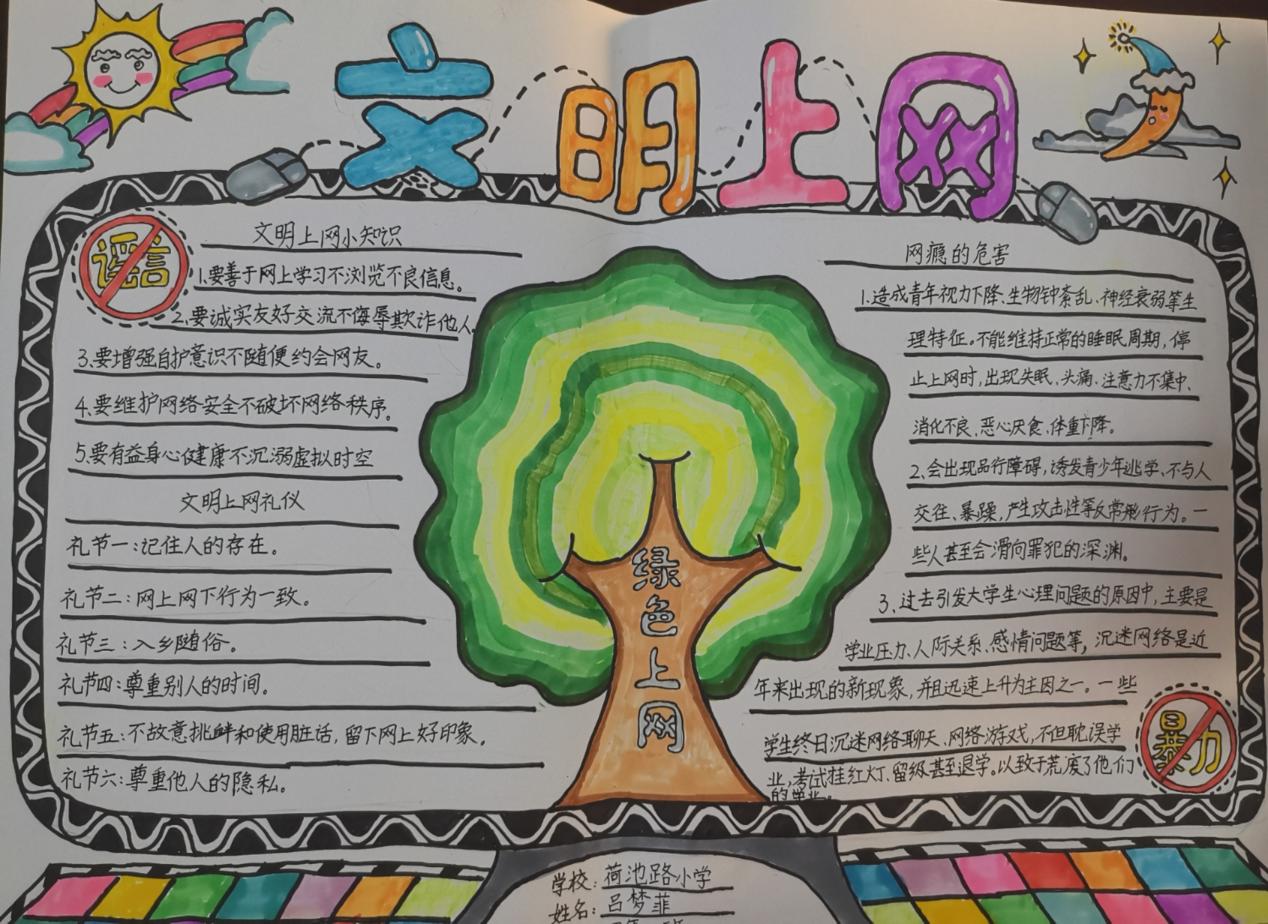 文明上网
谣言
文明上网小知识
1.要善于网上学习不浏览不良信息。
2.要诚实友好交流不侮辱欺诈他人
3.要增强自护意识不随便约会网友。
4.要维护网络安全不破坏网络秩序。
5.要有益身心健康不沉溺虚拟时空
文明上网礼仪
礼节一:记住人的存在。
礼节二:网上网下行为一致。
礼节三:入乡随俗。
礼节四:尊重别人的时间。
礼节五:不故意挑衅和使用脏话,留下网上好印象。
礼节六:尊重他人的隐私。
绿色上网
网瘾的危害
1.造成青年视力下降、生物钟紊乱、神经衰弱等生
理特征。不能维持正常的睡眠周期,停
止上网时,出现失眠、头痛、注意力不集中、
消化不良、恶心厌食、体重下降。
2.会出现品行障碍,诱发青少年逃学、不与人
交往、暴躁,产生攻击性等反常行为。一
些人甚至会滑向罪犯的深渊。
3.过去引发大学生心理问题的原因中,主要是
学业压力、人际关系、感情问题等,沉迷网络是近
年来出现的新现象,并且迅速上升为主因之一。一些
学生终日沉迷网络聊天、网络游戏,不但耽误学
业,考试挂红灯、留级甚至退学。以致于荒废了他们
的学业。
暴力
学校:荷池路小学
姓名:吕梦菲